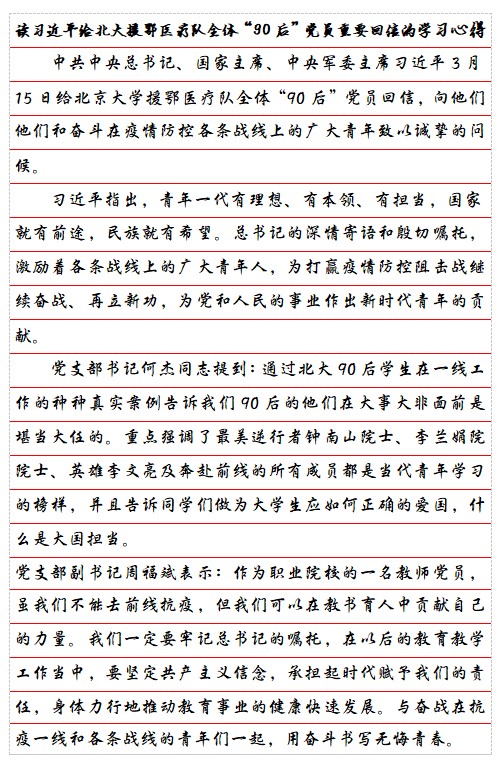 读习近平给北大援鄂医疗队全体“90后”党员重要回信的学习心得
中共中央总书记、国家主席、中央军委主席习近平3月
15日给北京大学援鄂医疗队全体“90后”党员回信，向他们
他们和奋斗在疫情防控各条战线上的广大青年致以诚挚的问
候。
习近平指出，青年一代有理想、有本领、有担当，国家
就有前途，民族就有希望。总书记的深情寄语和殷切嘱托，
激励着各条战线上的广大青年人，为打赢疫情防控阻击战继
续奋战、再立新功，为党和人民的事业作出新时代青年的贡
献。
党支部书记何杰同志提到：通过北大90后学生在一线工
作的种种真实案例告诉我们90后的他们在大事大非面前是
堪当大任的。重点强调了最美逆行者钟南山院士、李兰娟院
院士、英雄李文亮及奔赴前线的所有成员都是当代青年学习
的榜样，并且告诉同学们做为大学生应如何正确的爱国，什
么是大国担当。
党支部副书记周福斌表示：作为职业院校的一名教师党员，
虽我们不能去前线抗疫，但我们可以在教书育人中贡献自己
的力量。我们一定要牢记总书记的嘱托，在以后的教育教学
工作当中，要坚定共产主义信念，承担起时代赋予我们的责
任，身体力行地推动教育事业的健康快速发展。与奋战在抗
疫一线和各条战线的青年们一起，用奋斗书写无悔青春。